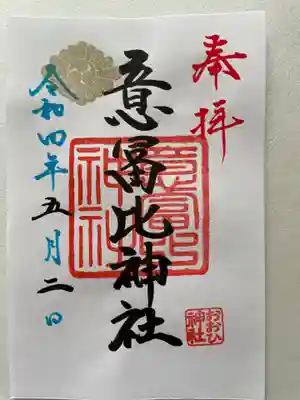 奉拝
意冨比神社
意冨比神社
令和四年五月二日
おおひ
神社